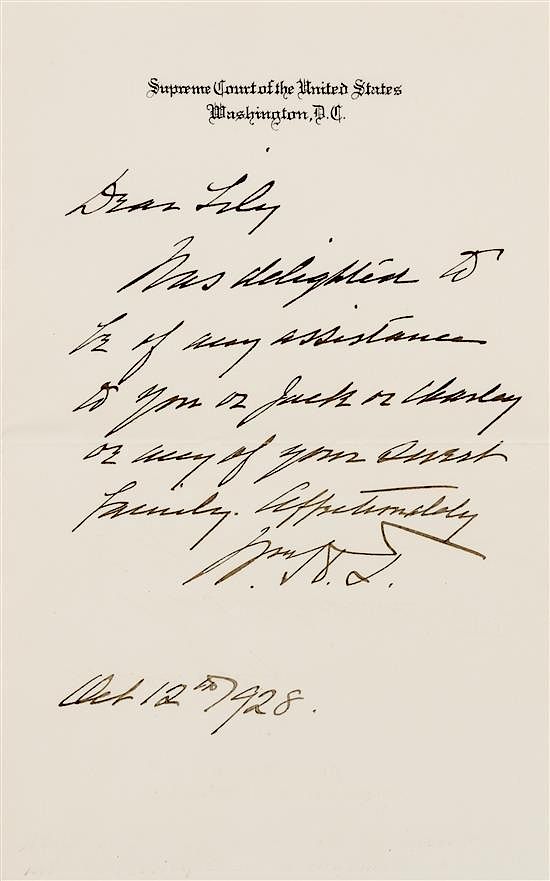 Supreme Court of the United States
Washington, D.C.
Dear Lily
Was delighted to
be of any assistance
to you or Jack or Charley
or any of your sweet
family. Affectionately
Wm H. T.
Oct 12th 1928.